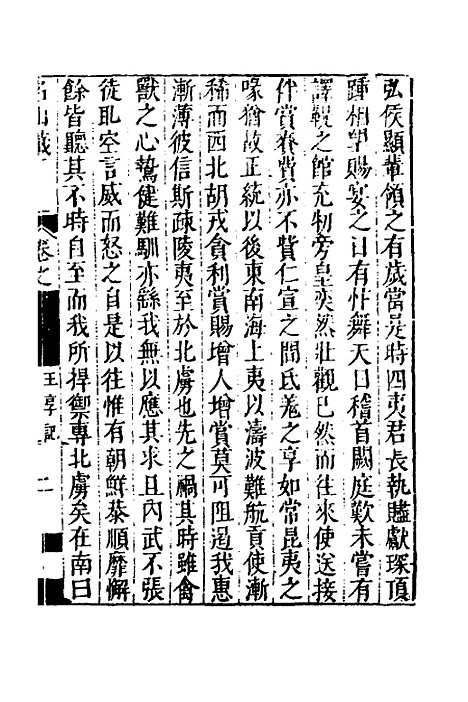 弘侯顯軰領之有歲當是時四夷君長執贐獻琛頂
踵相望賜宴之日有忭舞天日稽首闕庭歎未嘗有
譯鞮之館充牣旁皇奕然壯觀已然而往來使送接
伴賞賚費亦不貲仁宣之間氐羗之享如常昆夷之
喙猶故正統以後東南海上夷以濤波難航貢使漸
稀而西北胡戎貪利賞賜增人增賞莫可阻遏我惠
漸薄彼信斯疎陵夷至於北虜也先之禍其時雖禽
獸之心鷙健難馴亦繇我無以應其求且內武不張
徒恥空言威而怒之自是以往惟有朝鮮㳟順靡懈
餘皆聽其不時自至而我所捍禦專北虜矣在南曰
名山藏
卷之
王享記
二